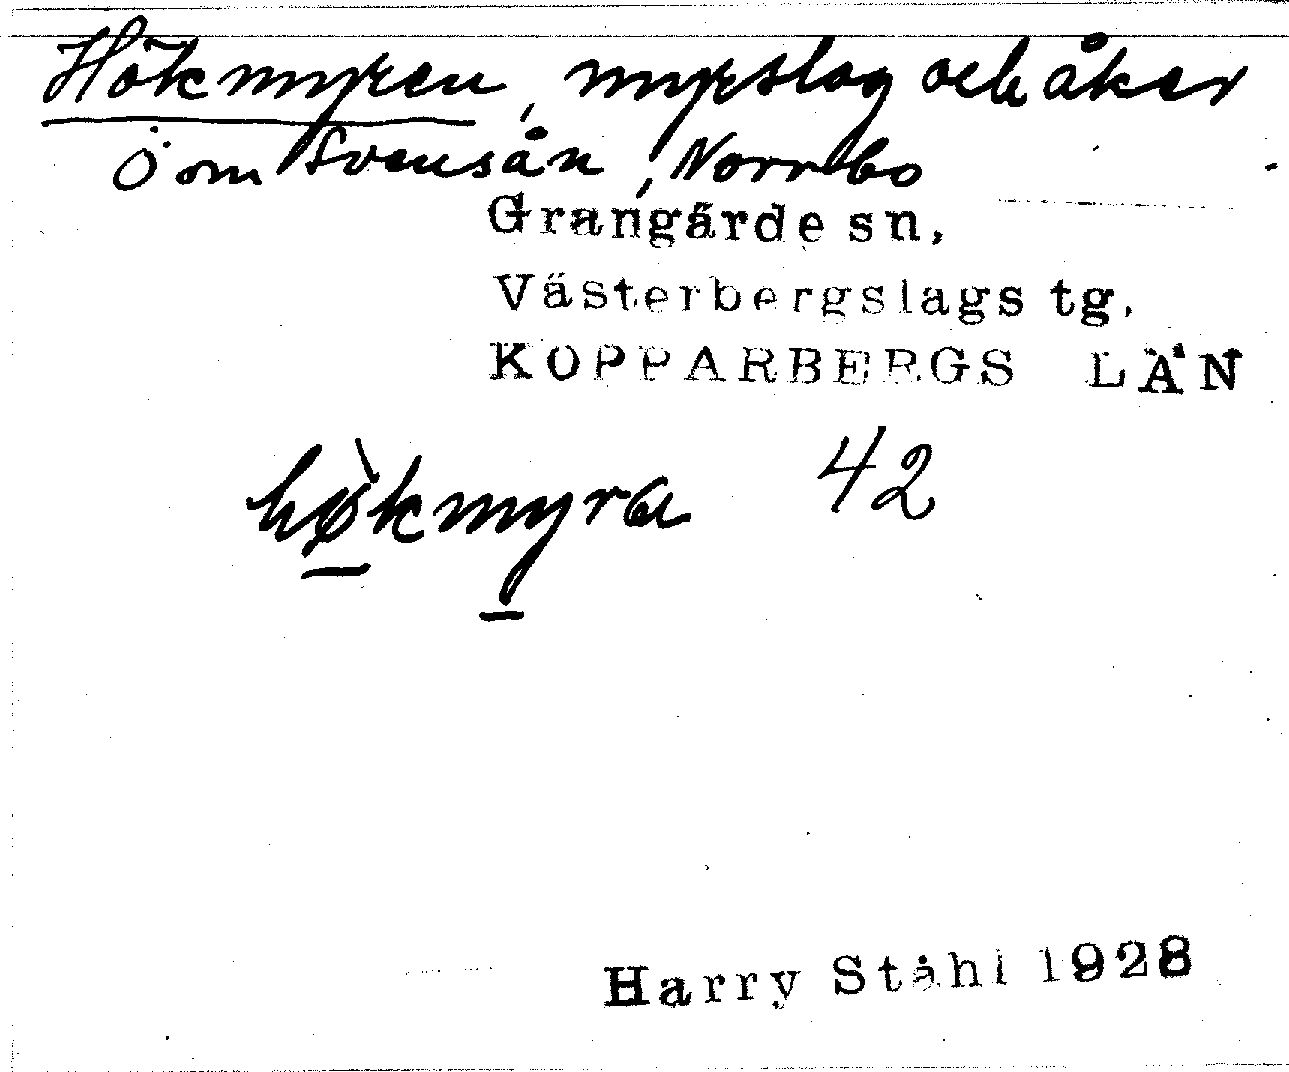 Hökmyren, myrslog och åker
Ö om Svensån, Norrbo
Grangärde sn,
Västerbergslags tg.
KOPPARBERGS LÄN
hø̀kmyra 42
Harry Ståhl 1928